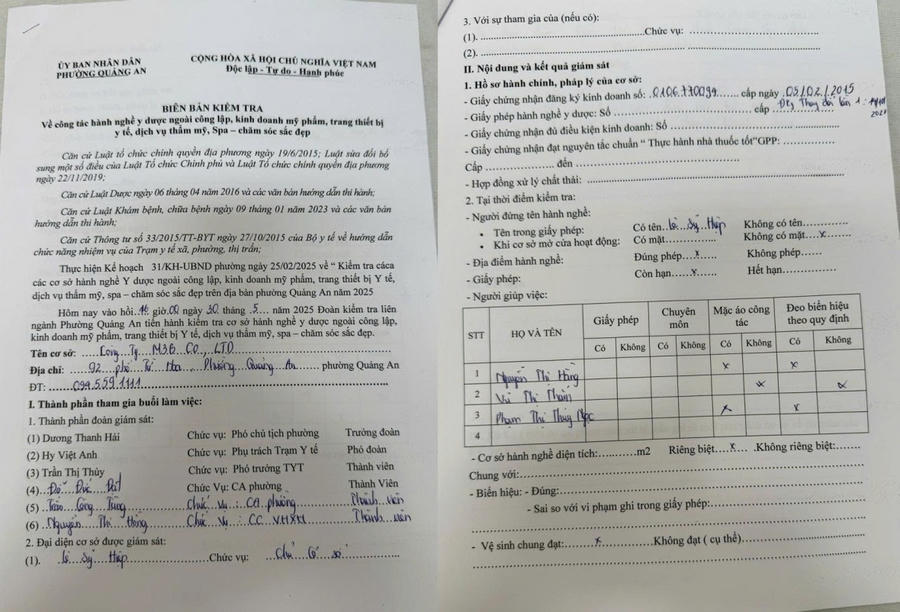 ỦY BAN NHÂN DÂN
PHƯỜNG QUẢNG AN
CỘNG HÒA XÃ HỘI CHỦ NGHĨA VIỆT NAM
Độc lập - Tự do - Hạnh phúc
BIÊN BẢN KIỂM TRA
Về công tác hành nghề y dược ngoài công lập, kinh doanh mỹ phẩm, trang thiết bị
y tế, dịch vụ thẩm mỹ, Spa – chăm sóc sắc đẹp
Căn cứ Luật tổ chức chính quyền địa phương ngày 19/6/2015; Luật sửa đổi bổ
sung một số điều của Luật Tổ chức Chính phủ và Luật Tổ chức chính quyền địa phương
ngày 22/11/2019;
Căn cứ Luật Dược ngày 06 tháng 04 năm 2016 và các văn bản hướng dẫn thi hành;
Căn cứ Luật Khám bệnh, chữa bệnh ngày 09 tháng 01 năm 2023 và các văn bản
hướng dẫn thi hành;
Căn cứ Thông tư số 33/2015/TT-BYT ngày 27/10/2015 của Bộ y tế về hướng dẫn
chức năng nhiệm vụ của Trạm y tế xã, phường, thị trấn;
Thực hiện Kế hoạch 31/KH-UBND phường ngày 25/02/2025 về “ Kiểm tra cáca
các cơ sở hành nghề Y dược ngoài công lập, kinh doanh mỹ phẩm, trang thiết bị Y tế,
dịch vụ thẩm mỹ, spa – chăm sóc sắc đẹp trên địa bàn phường Quảng An năm 2025
Hôm nay vào hồi... giờ.00 ngày 20 tháng .5... năm 2025 Đoàn kiểm tra liên
ngành Phường Quảng An tiến hành kiểm tra cơ sở hành nghề y dược ngoài công lập,
kinh doanh mỹ phẩm, trang thiết bị Y tế, dịch vụ thẩm mỹ, spa – chăm sóc sắc đẹp.
Tên cơ sở: Công Ty M3B CO., LTD
Địa chỉ: 92 phố Từ Hoa, Phường Quảng An phường Quảng An
ĐT: 094.559.1111
I. Thành phần tham gia buổi làm việc:
1. Thành phần đoàn giám sát:
(1) Dương Thanh Hải Chức vụ: Phó chủ tịch phường Trưởng đoàn
(2) Hy Việt Anh Chức vụ: Phụ trách Trạm Y tế Phó đoàn
(3) Trần Thị Thủy Chức vụ: Phó trưởng TYT Thành viên
(4) Đỗ Đức Đạt Chức Vụ: CA phường Thành Viên
(5) Trần Công Tùng Chức vụ: CA phường Thành viên
(6) Nguyễn Thị Hồng Chức vụ: CC VHXH Thành viên
2. Đại diện cơ sở được giám sát:
(1). Lê Sỹ Hiệp Chức vụ: Chủ cơ sở
3. Với sự tham gia của (nếu có):
(1). Chức vụ:
(2).
II. Nội dung và kết quả giám sát
1. Hồ sơ hành chính, pháp lý của cơ sở:
- Giấy chứng nhận đăng ký kinh doanh số: 0106770094 cấp ngày 05/02/2015
- Giấy phép hành nghề y dược: Số cấp Đky Thay đổi lần 1:
- Giấy chứng nhận đủ điều kiện kinh doanh: Số
- Giấy chứng nhận đạt nguyên tắc chuẩn “ Thực hành nhà thuốc tốt”GPP:
Cấp đến
- Hợp đồng xử lý chất thải:
2. Tại thời điểm kiểm tra:
- Người đứng tên hành nghề:
• Tên trong giấy phép: Có tên Lê Sỹ Hiệp Không có tên
• Khi cơ sở mở cửa hoạt động: Có mặt Không có mặt x
- Địa điểm hành nghề: Đúng phép x Không phép
- Giấy phép: Còn hạn x Hết hạn
- Người giúp việc:
STT HỌ VÀ TÊN Giấy phép Chuyên môn Mặc áo công tác Đeo biển hiệu theo quy định
Có Không Có Không Có Không Có Không
1 Nguyễn Thị Hằng x x
2 Vũ Thị Thanh x x
3 Phạm Thị Thúy Ngọc x x
4
- Cơ sở hành nghề diện tích: m2 Riêng biệt x .Không riêng biệt:
Chung với:
- Biển hiệu: - Đúng:
- Sai so với vi phạm ghi trong giấy phép:
- Vệ sinh chung đạt: x Không đạt ( cụ thể)